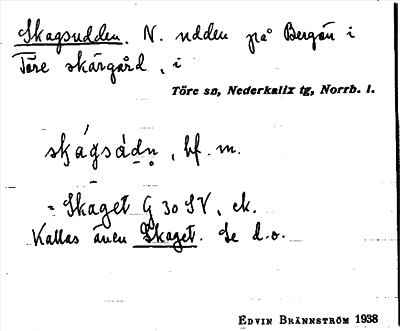 Skagsudden. N. udden på Bergön i
Töre skärgård, i
Töre sn, Nederkalix tg, Norrb. l.
skágsòdn̥, bf. m.
= Skaget G 30 SV, ek.
Kallas även Skaget. Se d.o.
EDVIN BRÄNNSTRÖM 1938